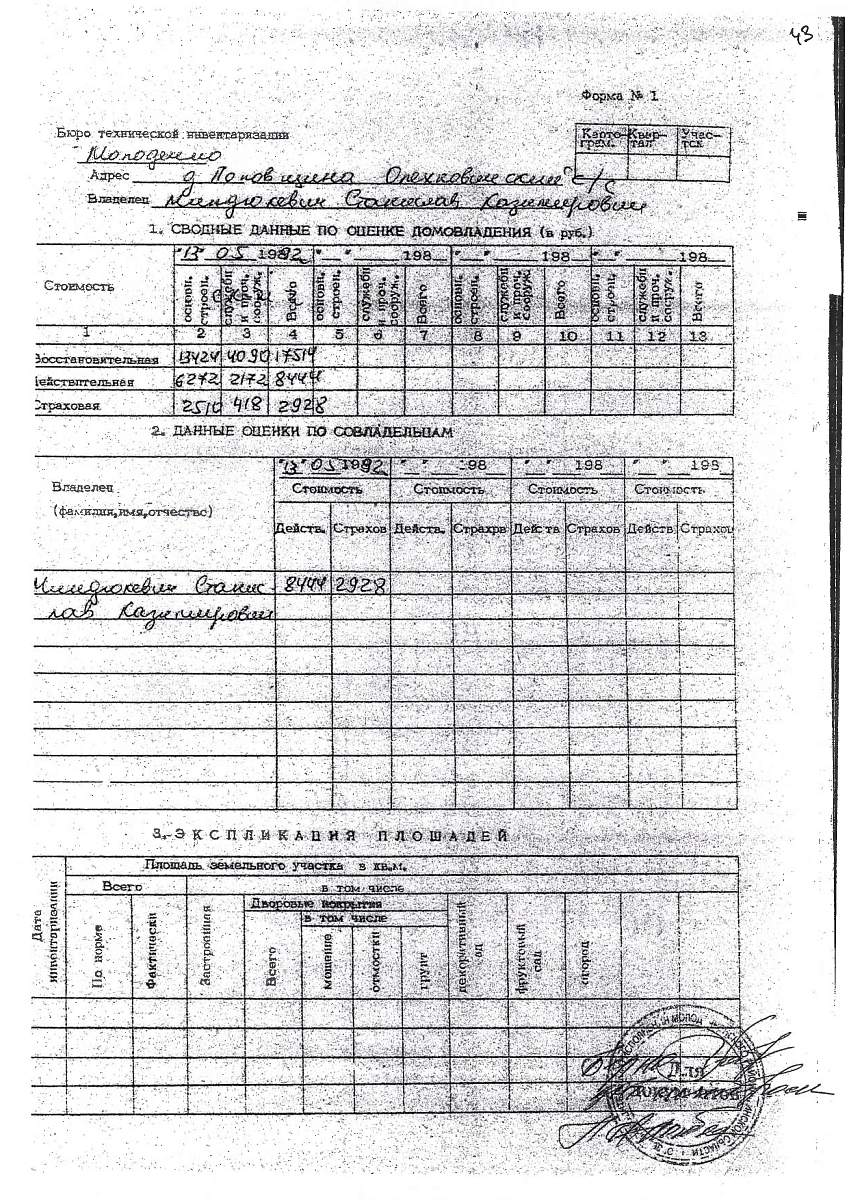 43
Форма № 1
Бюро технической инвентаризации
Карто- Квар- Учас-
грам. тал ток
Молодечно
Адрес д Поповщина Олехновичский с/с
Владелец Казимирович
1. СВОДНЫЕ ДАННЫЕ ПО ОЦЕНКЕ ДОМОВЛАДЕНИЯ (в руб.)
"13" 05 1992 " " 198 " " 198 " " 198
Стоимость
основн. строен. служебн и проч. сооруж. Всего основн. строен. служебн и проч. сооруж. Всего основн. строен. служебн и проч. сооруж. Всего основн. строен. служебн и проч. сооруж. Всего
1 2 3 4 5 6 7 8 9 10 11 12 13
Восстановительная 13424 4090 17514
действительная 6272 2172 8444
Страховая 2510 418 2928
2. ДАННЫЕ ОЦЕНКИ ПО СОВЛАДЕЛЬЦАМ
"13" 05 1992 " " 198 " " 198 " " 198
Владелец Стоимость Стоимость Стоимость Стоимость
(фамилия,имя,отчество)
Действ. Страхов Действ. Страхов Действ Страхов Действ Страхов
Станис 8444 2928
лав Казимирович
3. ЭКСПЛИКАЦИЯ ПЛОЩАДЕЙ
Площадь земельного участка в кв.м.
Всего в том числе
Дворовые покрытия
в том числе
Дата инвентаризации По норме Фактически Застроенная Всего мощение отмостки грунт декоративный сад фруктовый сад огород
Для
документов